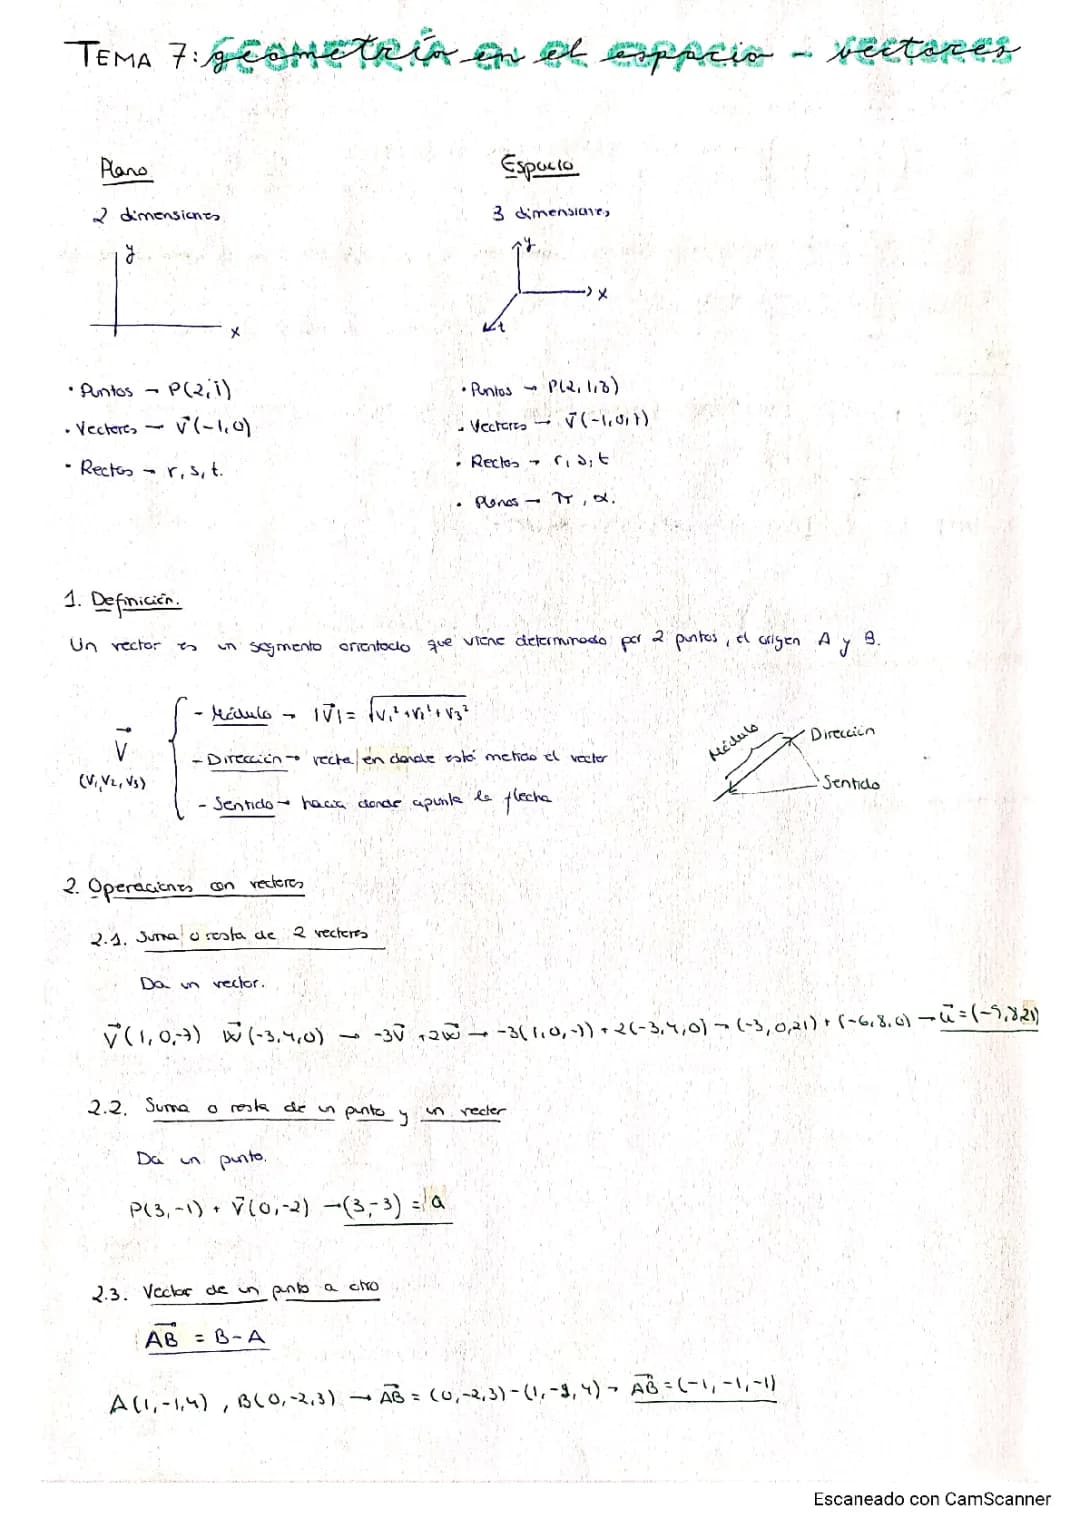 TEMA 7: geometría en el espacio - vectores
Plano
2 dimensiones
y
x
• Puntos → P(2,1)
• Vectores → v⃗(-1,0)
• Rectas → r, s, t.
Espacio
3 dimensiones
y
x
z
• Puntos → P(2,1,3)
• Vectores → v⃗(-1,0,7)
• Rectas → r, s, t
• Planos → π, α.
1. Definición.
Un vector es un segmento orientado que viene determinado por 2 puntos, el origen A y B.
v⃗
(V₁, V₂, V₃)
- Módulo → |v⃗| = √V₁² + V₂² + V₃²
- Dirección → recta en donde está metido el vector
- Sentido → hacia donde apunta la flecha
Módulo
Dirección
Sentido
2. Operaciones con vectores
2.1. Suma o resta de 2 vectores
Da un vector.
v⃗(1,0,-7) w⃗(-3,4,0) → -3v⃗ + 2w⃗ → -3(1,0,-7) + 2(-3,4,0) → (-3,0,21) + (-6,8,0) → u⃗ = (-9,8,21)
2.2. Suma o resta de un punto y un vector
Da un punto.
P(3,-1) + v⃗(0,-2) → (3,-3) = a
2.3. Vector de un punto a otro
AB⃗ = B - A
A(1,-1,4), B(0,-2,3) → AB⃗ = (0,-2,3) - (1,-1,4) → AB⃗ = (-1,-1,-1)
Escaneado con CamScanner